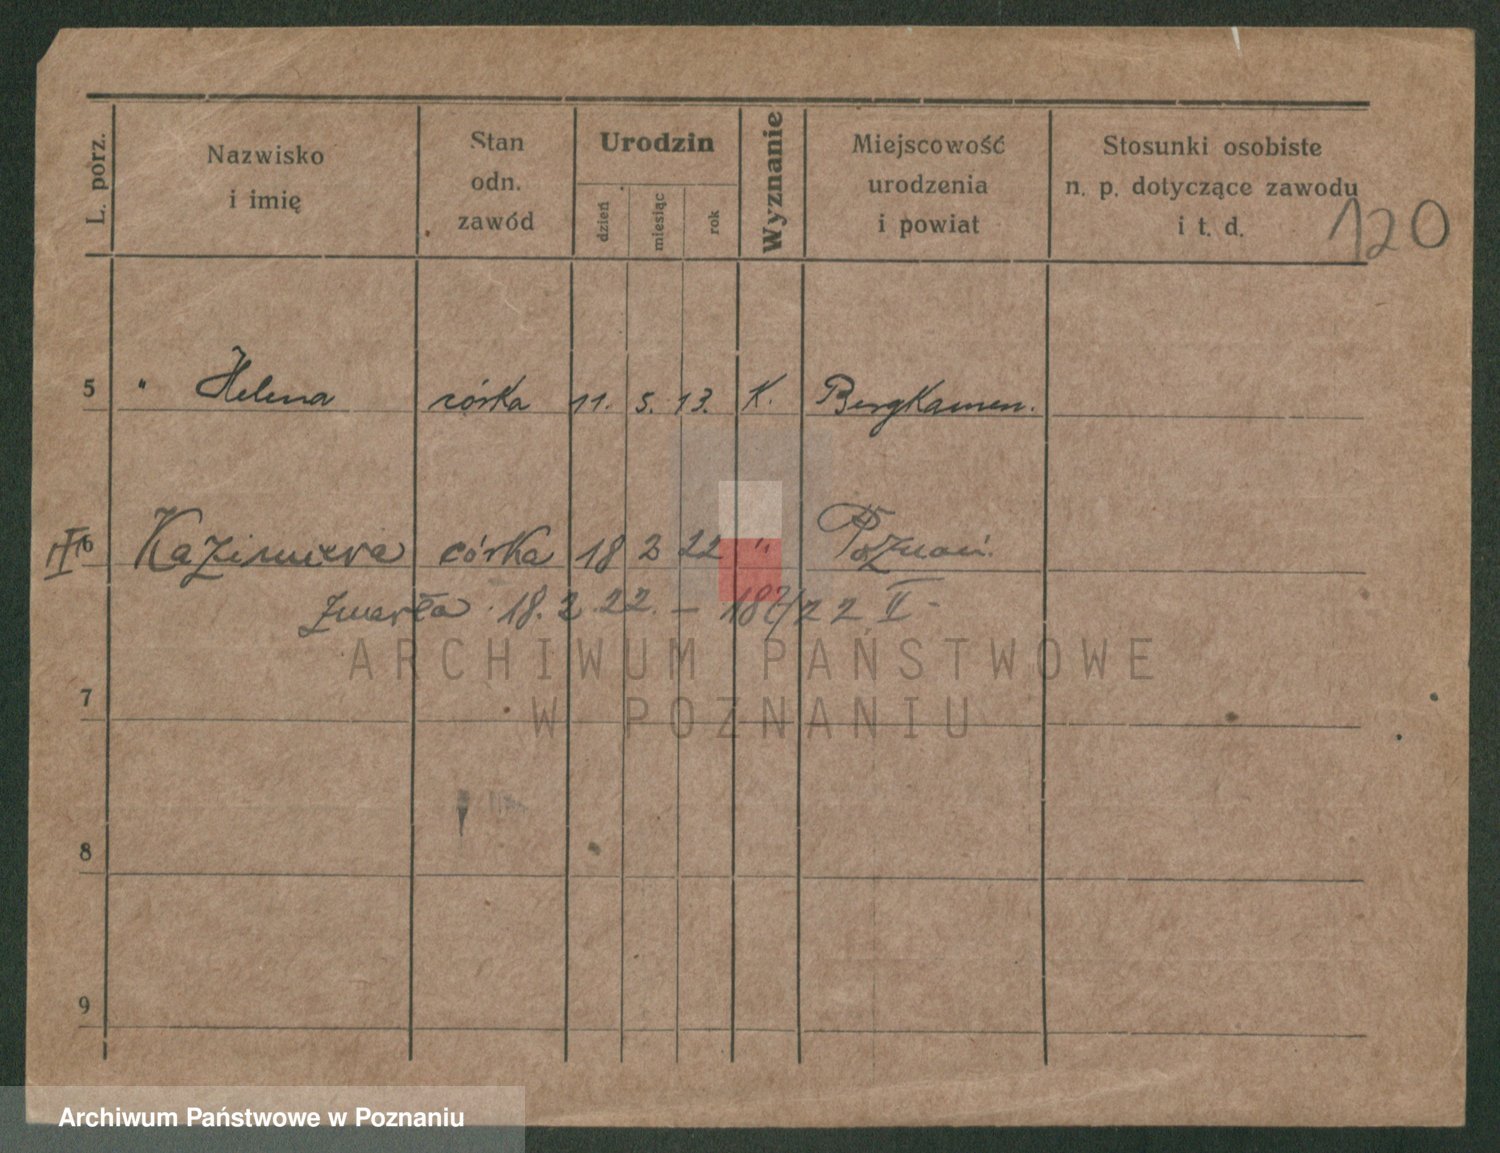 L. porz.
Nazwisko
i imię
Stan
odn.
zawód
Urodzin
dzień
miesiąc
rok
Wyznanie
Miejscowość
urodzenia
i powiat
Stosunki osobiste
n. p. dotyczące zawodu
i t. d.
120
5 " Helena córka 11. 5. 13. K. Bergkamen.
6 Kazimiera córka 18 2 22 " Poznań.
zmarła 18.2.22. – 187/22 II
7
8
9
ARCHIWUM PAŃSTWOWE
W POZNANIU
Archiwum Państwowe w Poznaniu